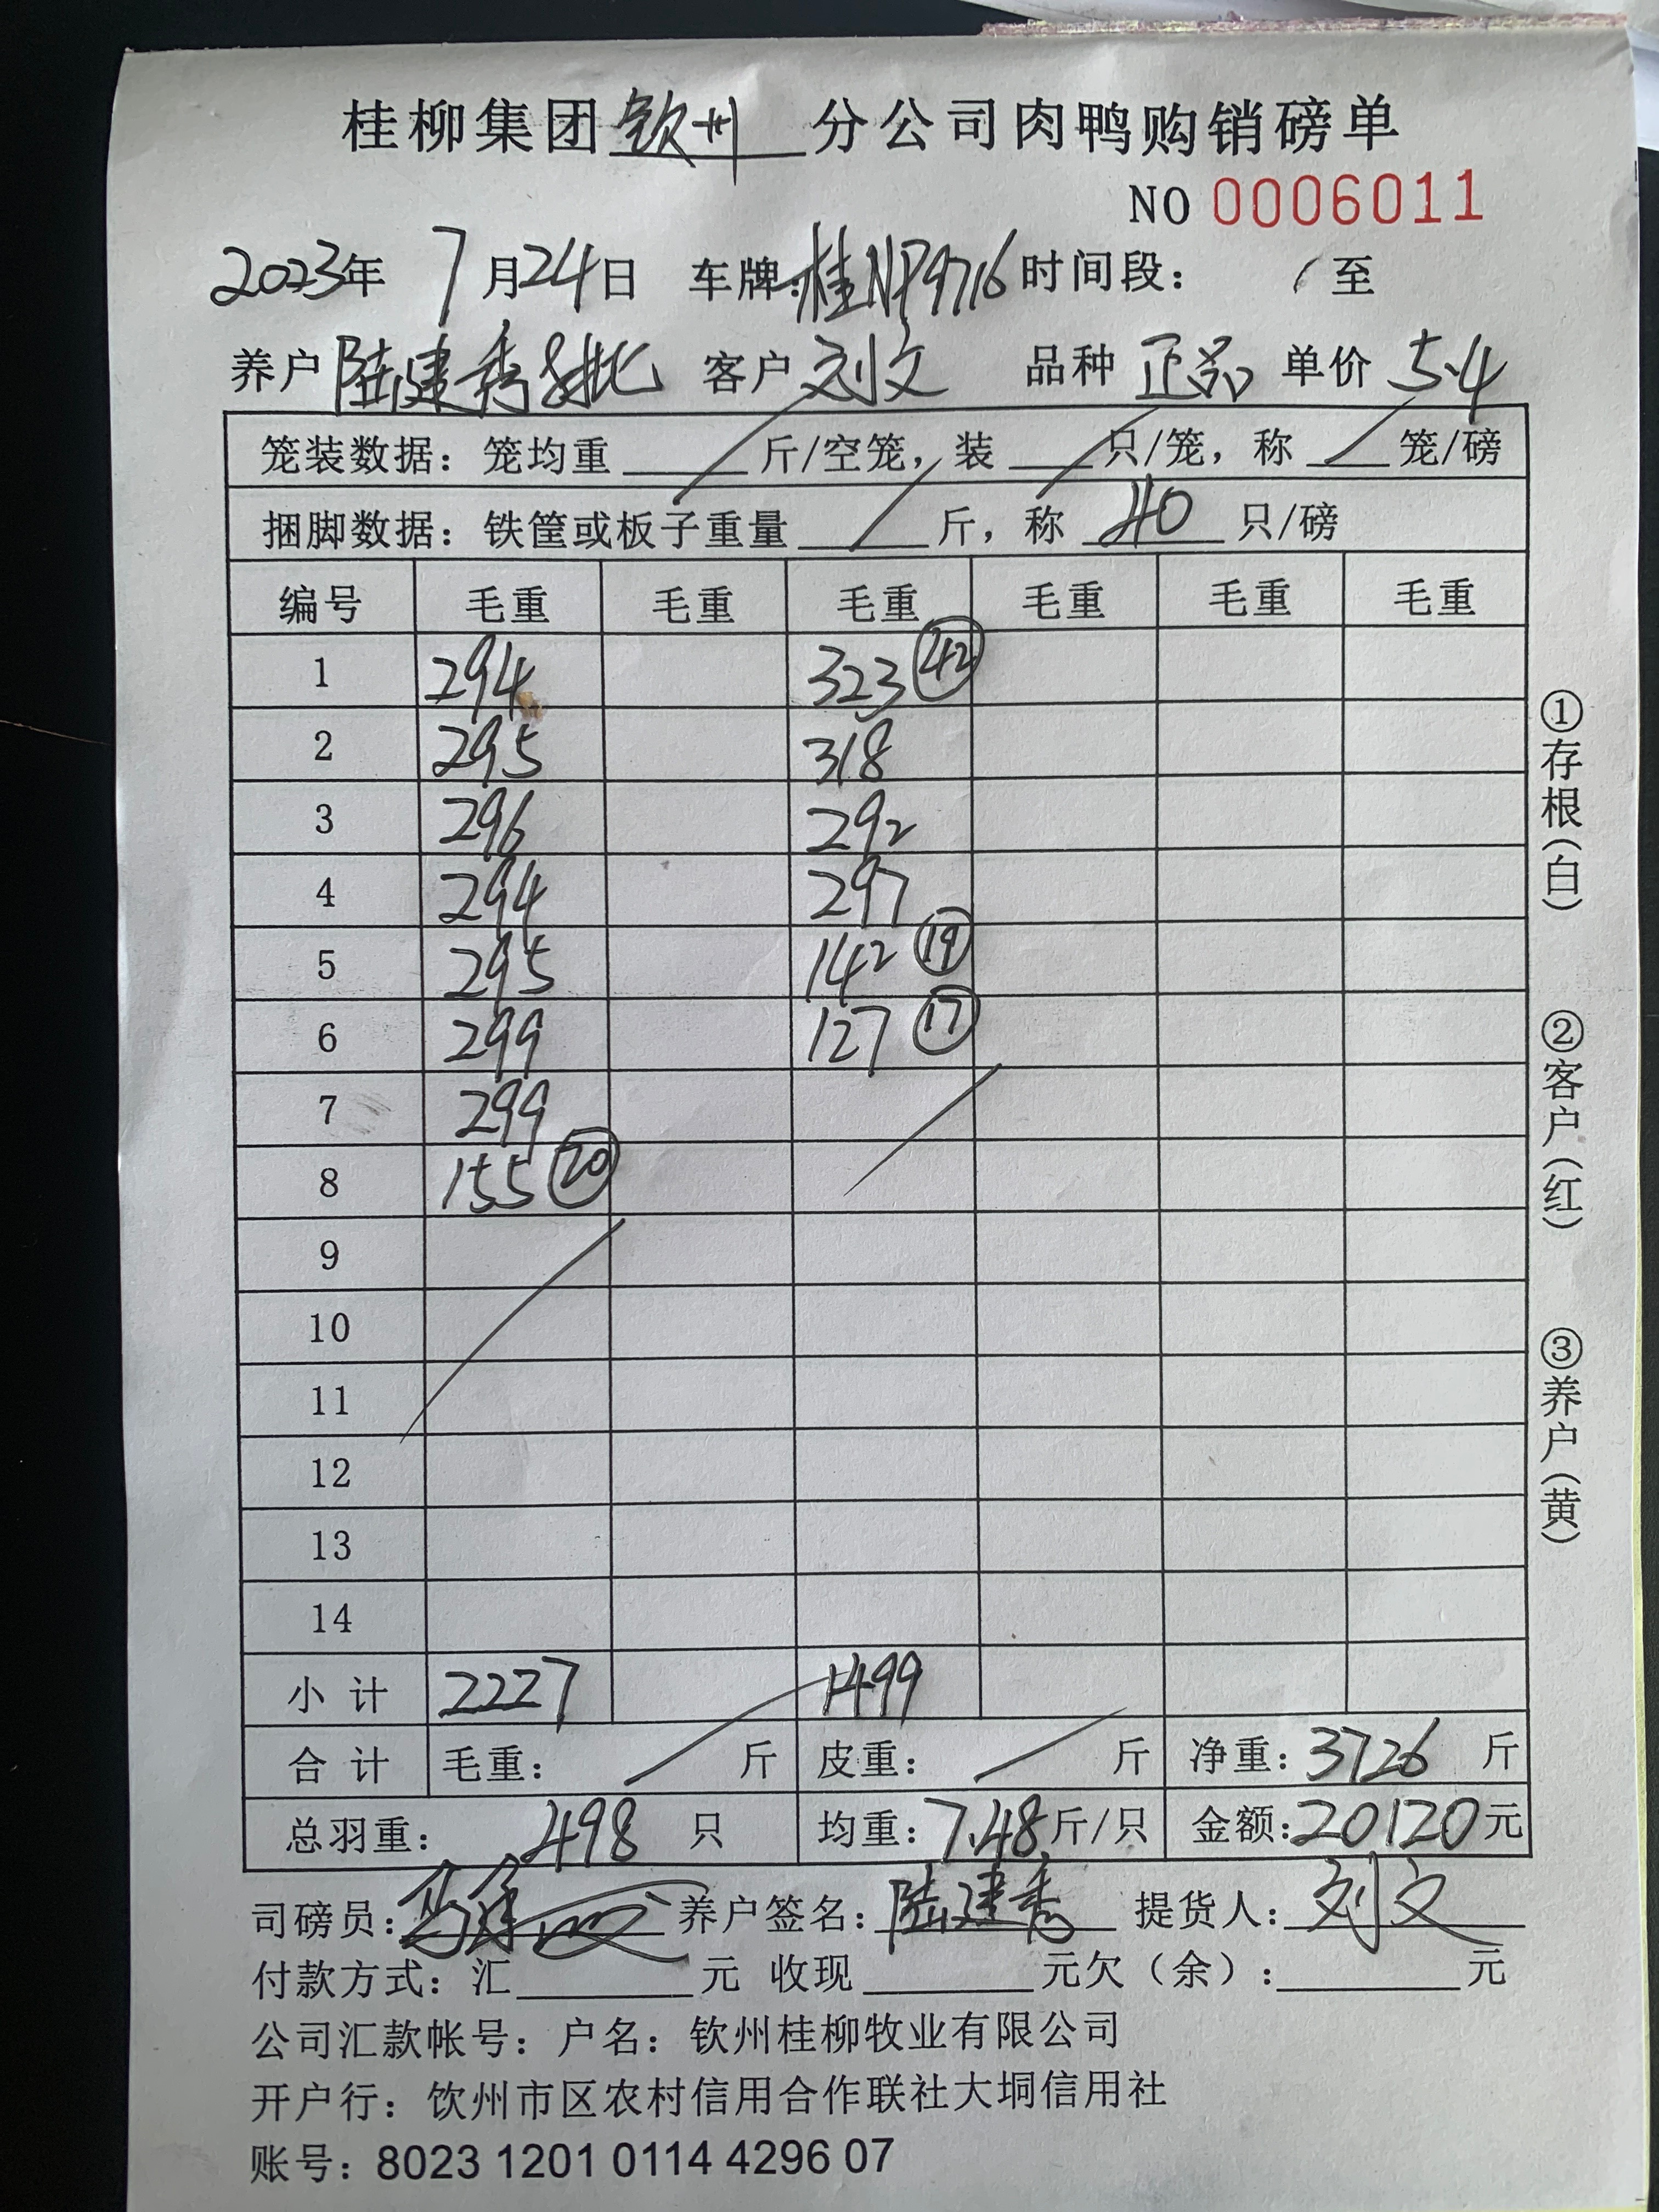 桂柳集团钦州分公司肉鸭购销磅单
NO 0006011
2023年 7月24日 车牌:桂NP9716 时间段: / 至
养户 陆建秀8批 客户 刘文 品种 正品 单价 5.4
笼装数据: 笼均重 / 斤/空笼, 装 / 只/笼, 称 / 笼/磅
捆脚数据: 铁筐或板子重量 / 斤, 称 40 只/磅
编号 毛重 毛重 毛重 毛重 毛重 毛重
1 294 323 ㊷
2 295 318
3 296 292
4 294 297
5 295 142 ⑲
6 299 127 ⑰
7 299
8 155 ⑳
9
10
11
12
13
14
小计 2227 1499
合计 毛重: / 斤 皮重: / 斤 净重: 3726 斤
总羽重: 498 只 均重: 7.48斤/只 金额:20120元
司磅员: 养户签名: 陆建秀 提货人: 刘文
付款方式: 汇 元 收现 元欠(余): 元
公司汇款帐号: 户名: 钦州桂柳牧业有限公司
开户行: 钦州市区农村信用合作联社大垌信用社
账号: 8023 1201 0114 4296 07
①存根(白) ②客户(红) ③养户(黄)